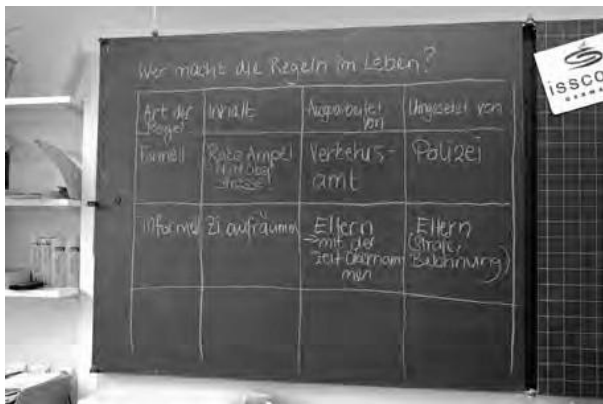 Wer macht die Regeln im Leben?
Art der Regel
Inhalt
Ausgearbeitet von
Umgesetzt von
Formell
Rote Ampel
Verkehrs-
amt
Polizei
informell
Zi aufräumen
Eltern
→ mit der
Zeit übernom
men
Eltern
(Strafe,
Belohnung)
issco